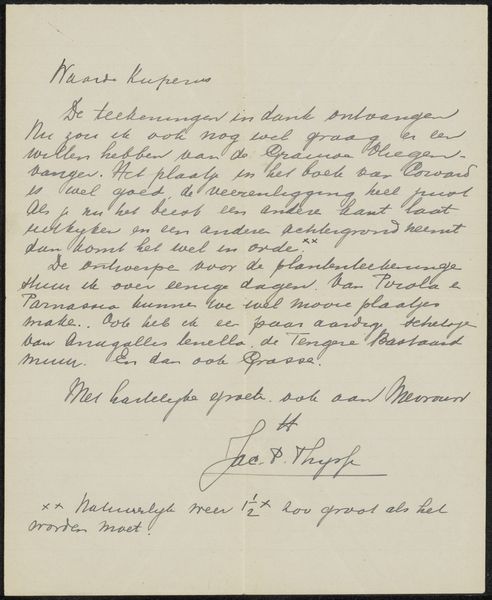 Waarde Kuperus
De teekeningen in dank ontvangen
Nu zou ik ook nog wel graag er een
willen hebben van de Grauwe Vliegen-
vanger. Het plaatje in het boek van Coward
is wel goed, de veerenligging heel juist
Als je nu het beest een andere kant laat
uitkijken en een andere achtergrond neemt
dan komt het wel in orde. xx
De ontwerpe voor de plantenteekeninge
stuur ik over eenige dagen. Van Pirola e
Parnassia kunnen we wel mooie plaatjes
make.. Ook heb ik een paar aardige schetsje
van Anagallis tenella, de Tengere Bastaard
muur. En dan ook Grasse.
Met hartelijke groete ook aan Mevrouw
tt
Jac. P. Thijsse
xx Natuurlijk weer 1 1/2 x zoo groot als het
worden moet.